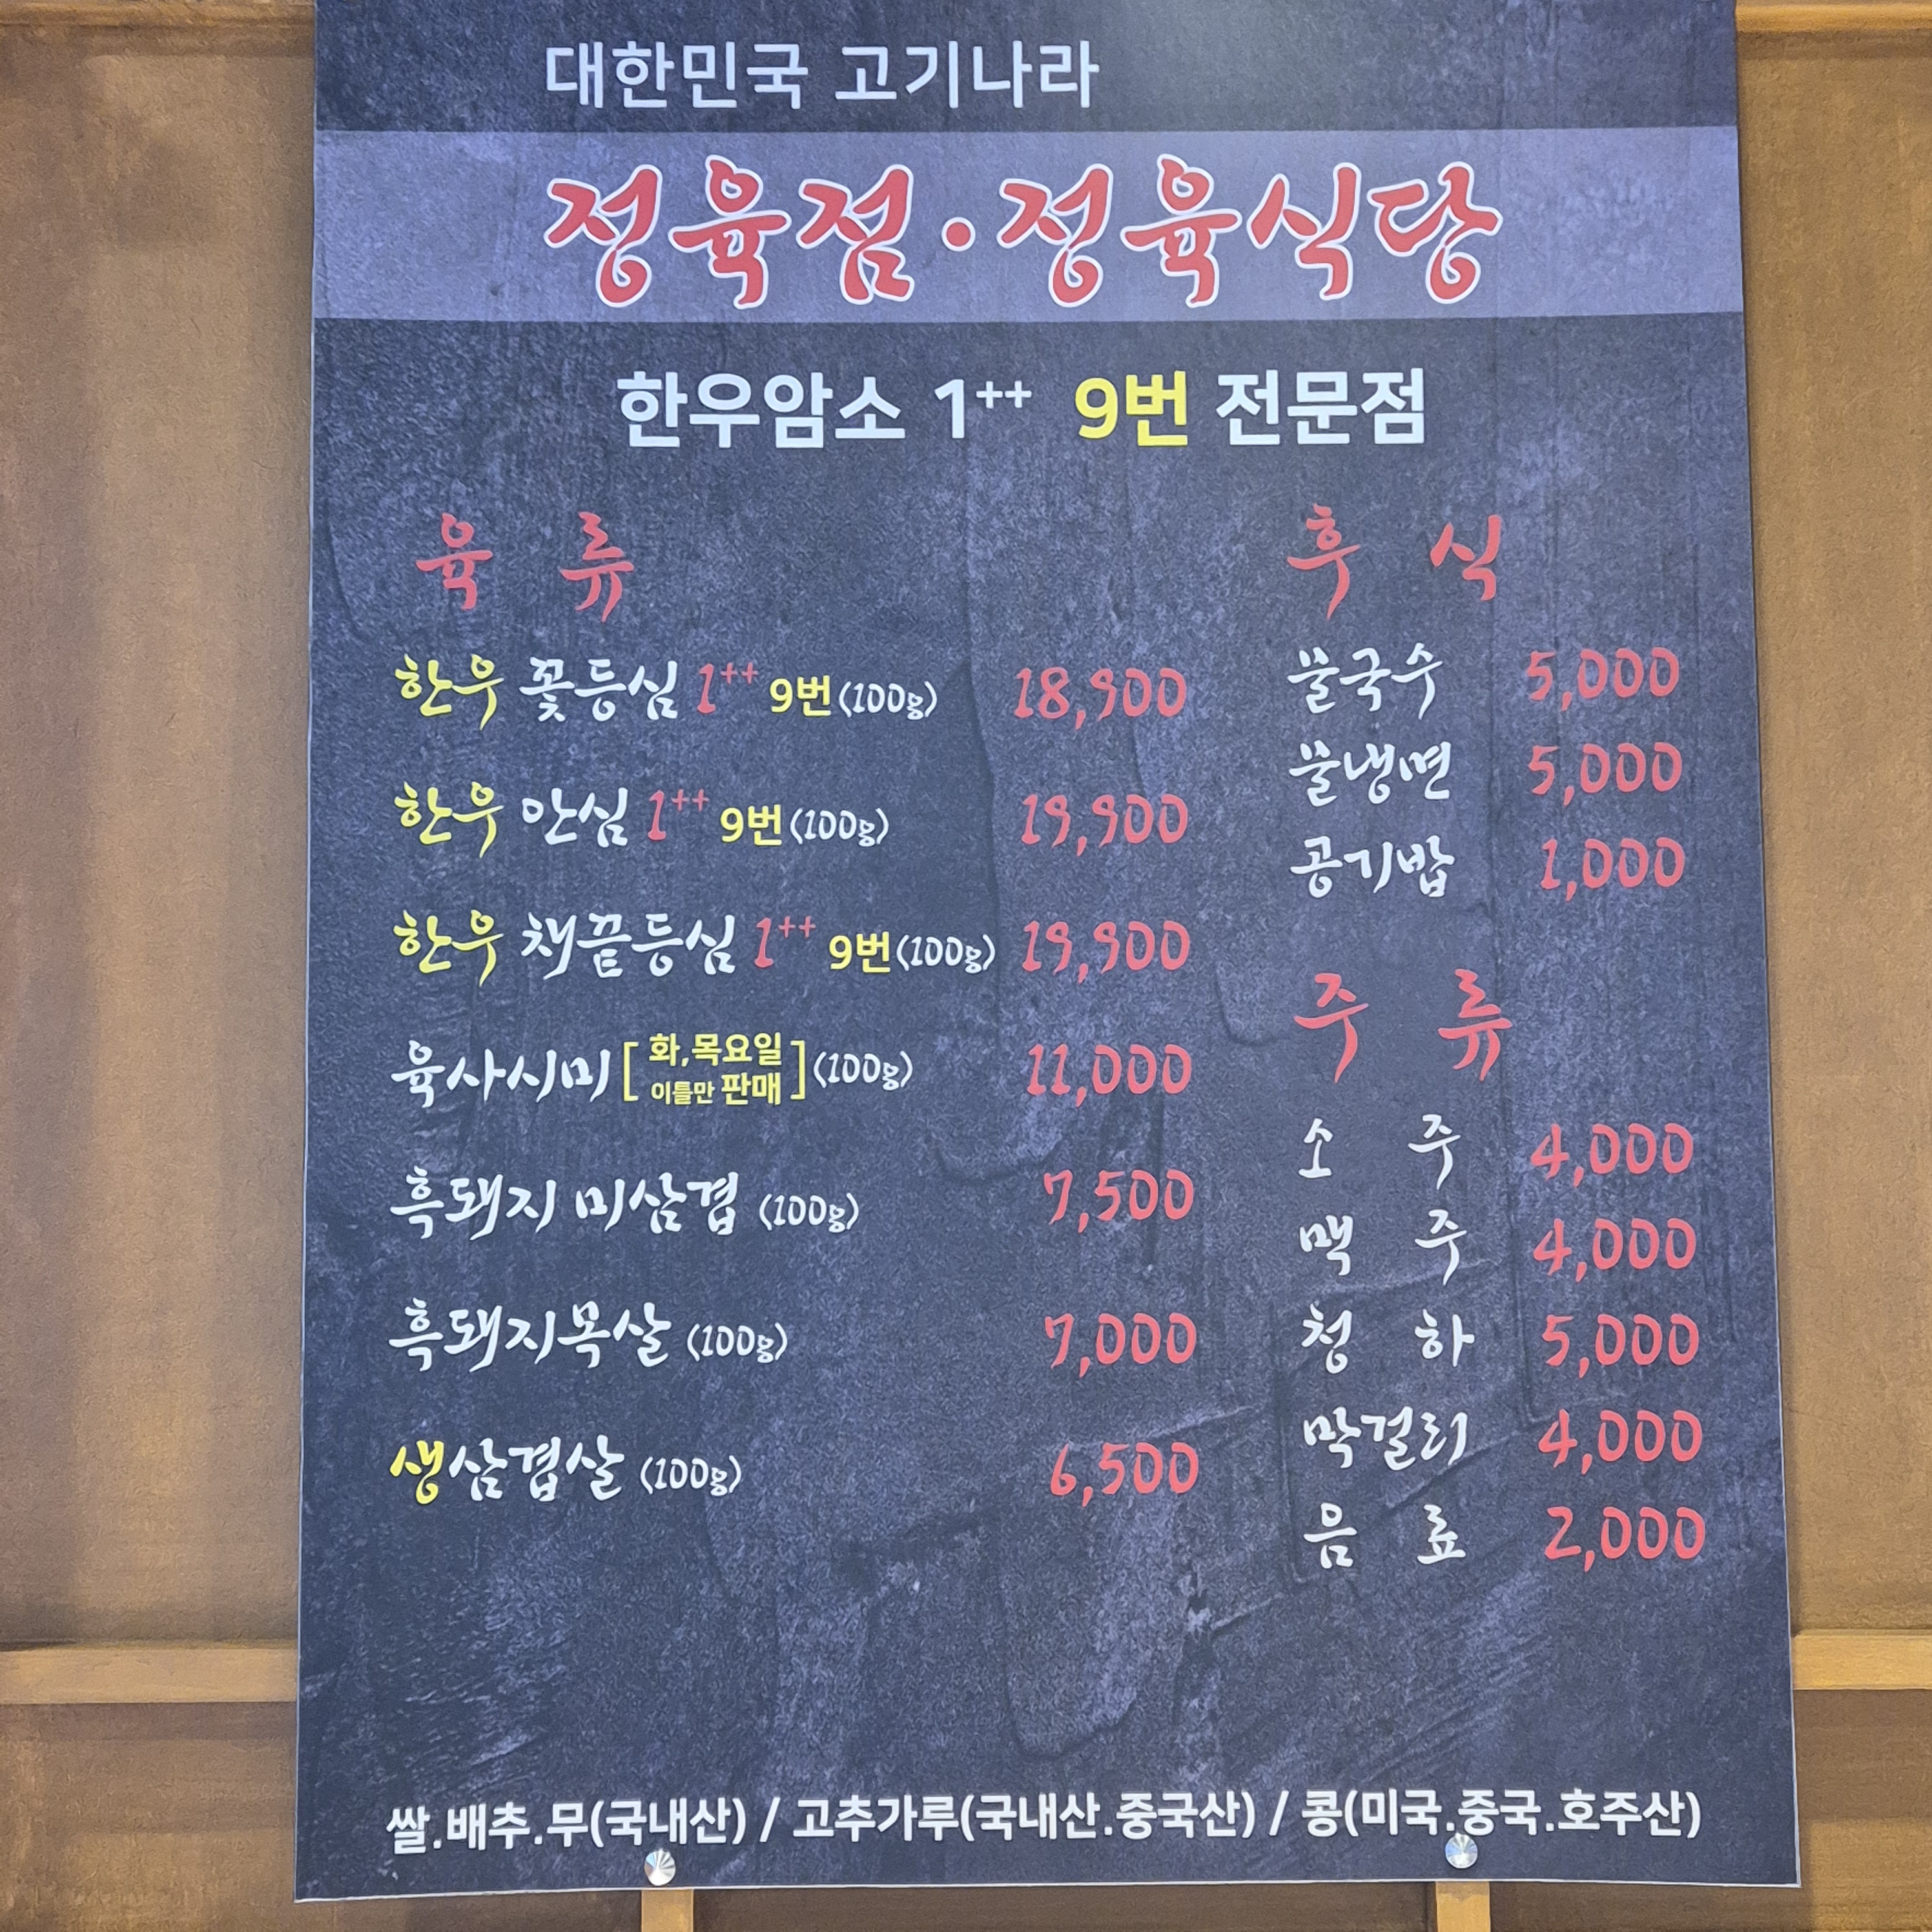 대한민국 고기나라
정육점·정육식당
한우암소 1++ 9번 전문점
육 류
한우 꽃등심 1++ 9번(100g) 18,900
한우 안심 1++ 9번(100g) 19,900
한우 채끝등심 1++ 9번(100g) 19,900
육사시미[화,목요일 이틀만 판매](100g) 11,000
흑돼지 미삼겹 (100g) 7,500
흑돼지목살 (100g) 7,000
생삼겹살 (100g) 6,500
후 식
물국수 5,000
물냉면 5,000
공기밥 1,000
주 류
소 주 4,000
맥 주 4,000
청 하 5,000
막걸리 4,000
음 료 2,000
쌀.배추.무(국내산) / 고추가루(국내산.중국산) / 콩(미국.중국.호주산)